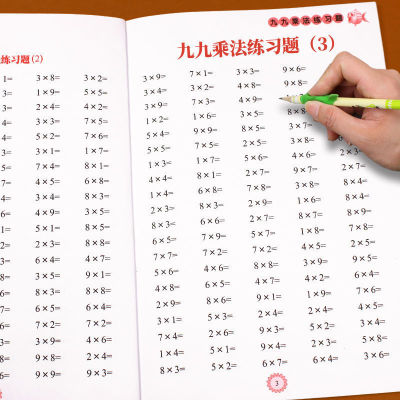 九九乘法练习题
练习题(2)
1= 3×8= 3×2=
3= 1×9= 5×5=
4= 2×4= 4×2=
4= 5×2= 7×6=
5= 6×1= 3×5=
7= 7×4= 8×1=
7= 4×5= 6×8=
3= 6×6= 3×8=
6= 4×9= 3×5=
1= 5×1= 8×8=
2= 8×3= 9×8=
3= 3×5= 9×1=
6= 8×3= 8×8=
8= 6×5= 6×4=
8= 7×2= 7×2=
3= 9×4= 6×6=
8= 9×8= 2×4=
4= 9×9= 9×3=
九九乘法练习题（3）
3×9= 7×1= 3×3= 9×6=
3×4= 3×2= 4×8= 9×8=
1×2= 7×3= 4×9=
5×4= 1×6= 3×5=
5×5= 9×9= 8×8= 3×7=
1×3= 2×7= 5×5=
4×4= 1×7= 5×6= 4×6=
1×4= 4×5= 2×7= 9×7= 8×4=
2×3= 6×7= 7×8= 7×4=
8×3= 8×8= 3×8= 5×4=
6×5= 6×6= 2×7= 8×7= 8×9=
7×7= 7×9= 5×7= 2×6= 5×8=
4×5= 7×5= 2×7= 4×5= 2×5=
4×6= 4×6= 6×8= 3×9= 9×5=
2×9= 8×8= 4×7= 4×2= 6×4=
3×1= 6×6= 9×1= 2×4= 4×5=
7×4= 7×5= 9×9= 2×4= 5×3=
1×4= 2×2= 6×4= 4×2=
8×3= 5×2= 6×7= 6×4= 3×6=
3